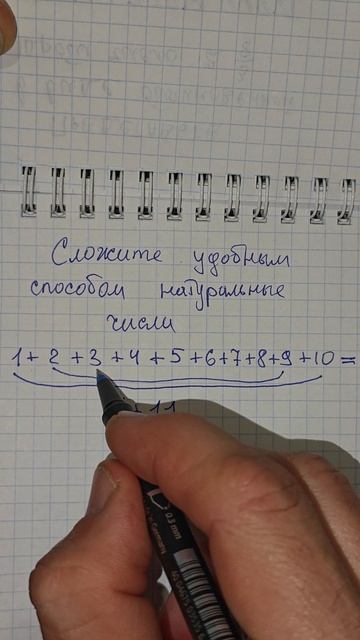 Сложите удобным
способом натуральные
числи
1+2+3+4+5+6+7+8+9+10=
+11
0.3 mm
Germany